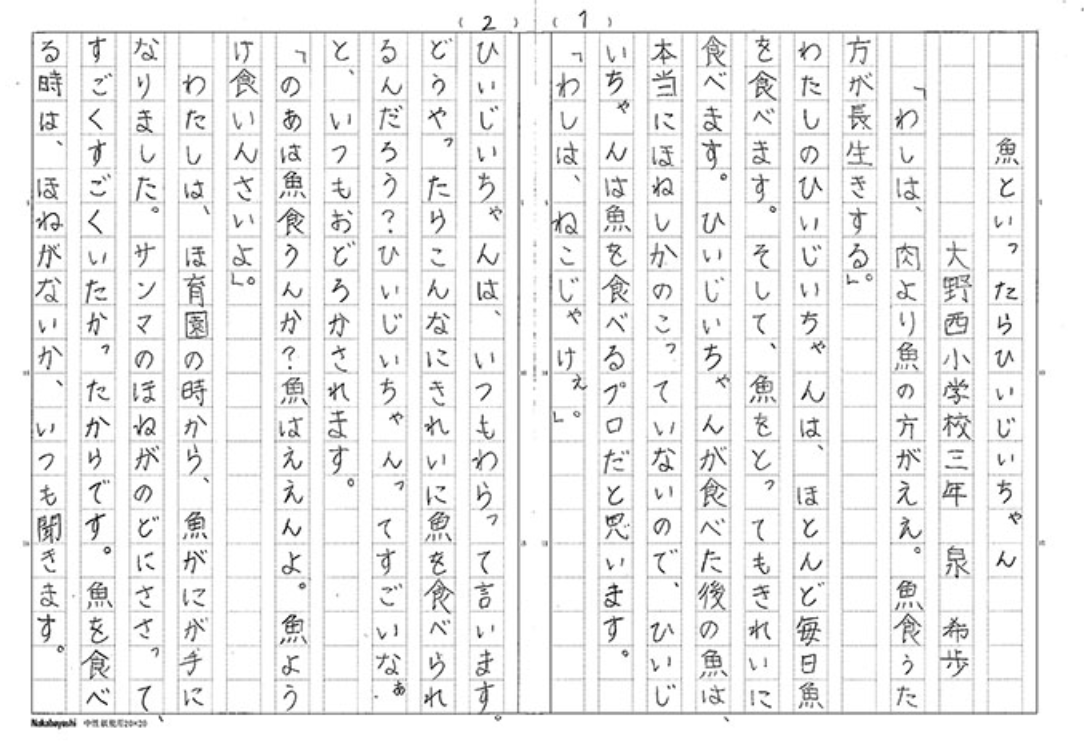 ( 1 )
魚といったらひいじいちゃん
大野西小学校三年 泉 希歩
「わしは、肉より魚の方がええ。魚食うた
方が長生きする」。
わたしのひいじいちゃんは、ほとんど毎日魚
を食べます。そして、魚をとってもきれいに
食べます。ひいじいちゃんが食べた後の魚は
本当にほねしかのこっていないので、ひいじ
いちゃんは魚を食べるプロだと思います。
「わしは、ねこじゃけぇ」。
( 2 )
ひいじいちゃんは、いつもわらって言います。
どうやったらこんなにきれいに魚を食べられ
るんだろう?ひいじいちゃんってすごいなぁ.
と、いつもおどろかされます。
「のあは魚食うんか?魚はええんよ。魚よう
け食いんさいよ」。
わたしは、ほ育園の時から、魚がにが手に
なりました。サンマのほねがのどにささって、
すごくすごくいたかったからです。魚を食べ
る時は、ほねがないか、いつも聞きます。
Nakabayashi 中性紙使用20×20